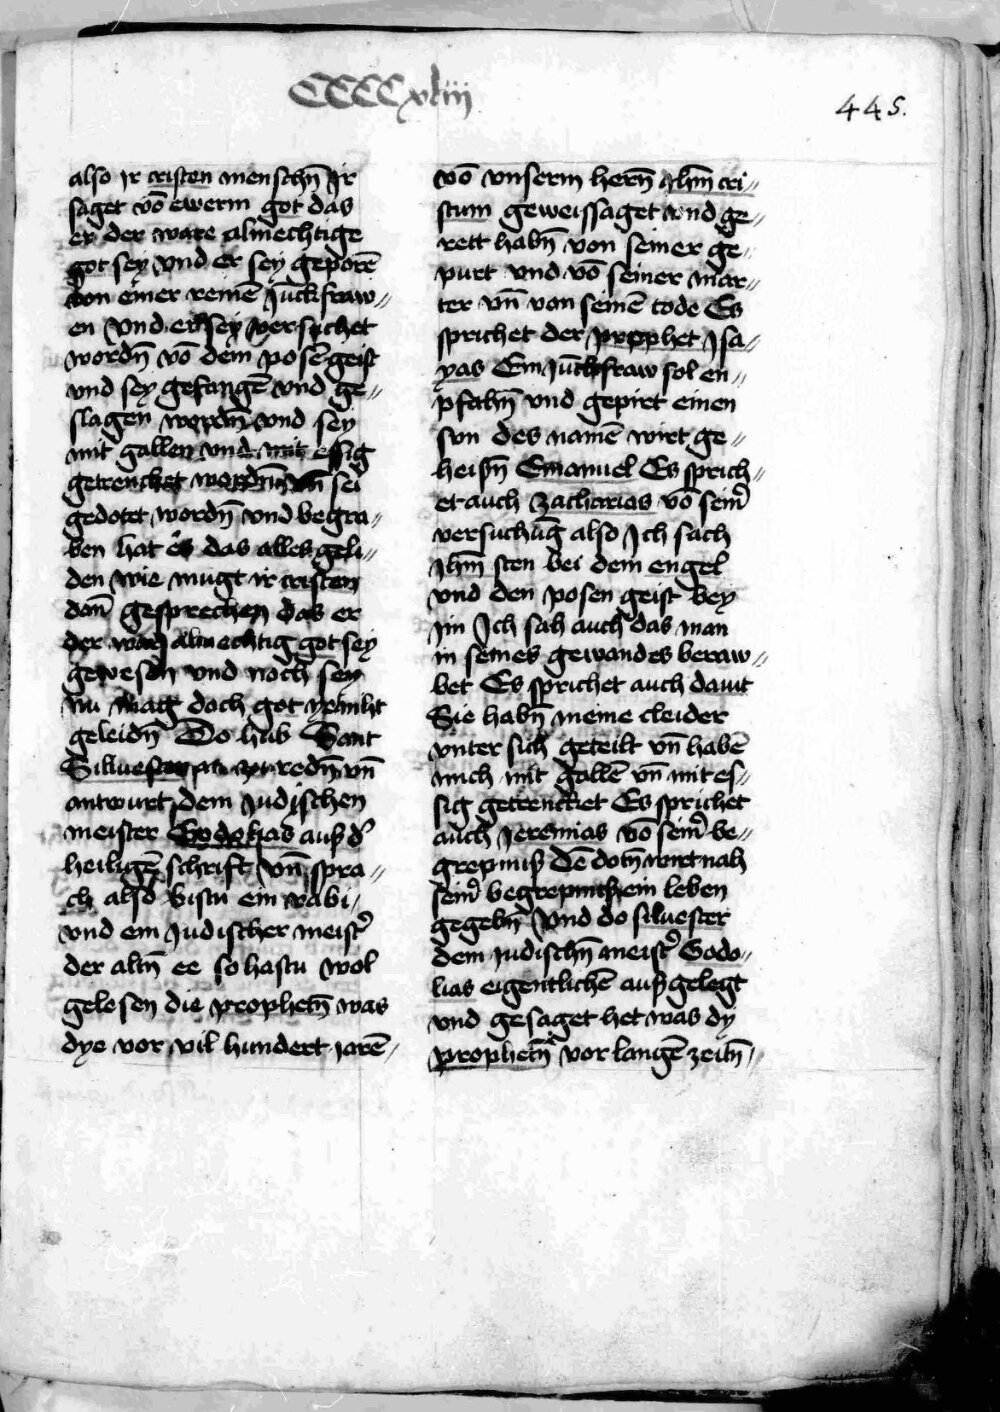 CCCCxliii
445.
also ir cristen menschn̄ Ir
saget vō ewerm got das
er der ware almechtige
got sey vnd er sey geporē
von einer reinē Juckfraw„
en vnd er sey versuchet
wordn̄ vō dem posē geist
vnd sey gefangē vnd ge„
slagen wordn̄ vnd sey
mit gallen vnd mit essig
getrencket wordn̄ vn̄ sei
gedotet wordn̄ vnd begra„
ben hat es das alles geli„
den wie mugt ir cristen
dan̄ gesprechen das er
der war almechtig got sey
gewesen vnd noch sey
nu mag doch got nicht
geleidn̄ Do hub Sant
Siluester an zu redn̄ vn̄
antwurt dem Judischen
meister Godolias auß d'
heiligē schrift vn̄ spra„
ch also bistu ein rabi
vnd ein Judischer meist'
der altn̄ ee so hastu wol
gelesen die prophetn̄ was
dye vor vil hundert jarē
vō vnserm hern̄ Jhm̄ cri„
stum geweissaget vnd ge„
rett habn̄ von seiner ge„
purt vnd vō seiner mar„
ter vn̄ von seinē tode Es
sprichet der prophet Isa„
yas Ein Juckfraw sol en„
pfahn̄ vnd gepirt einen
sun des namē wirt ge„
heißn̄ Emanuel Es sprich„
et auch Zacharias vō seinr̄
versuchūg also Ich sach
Jhm̄ sten bei dem engel
vnd den posen geist bey
im Ich sah auch das man
in seines gewandes beraw„
bet Es sprichet auch dauit
Sie habn̄ meine cleider
vnter sich geteilt vn̄ habē
mich mit gallē vn̄ mit es„
sig getrencket Es sprichet
auch Jeremias vō seinr̄ be„
grepniß Dē dotn̄ wirt nah
seinr̄ begrepniß ein leben
gegebn̄ Vnd do siluester
dem Judischn̄ meist' Godo„
lias eigentlichē außgelegt
vnd gesaget het was dy
prophetn̄ vor langē zeitn̄